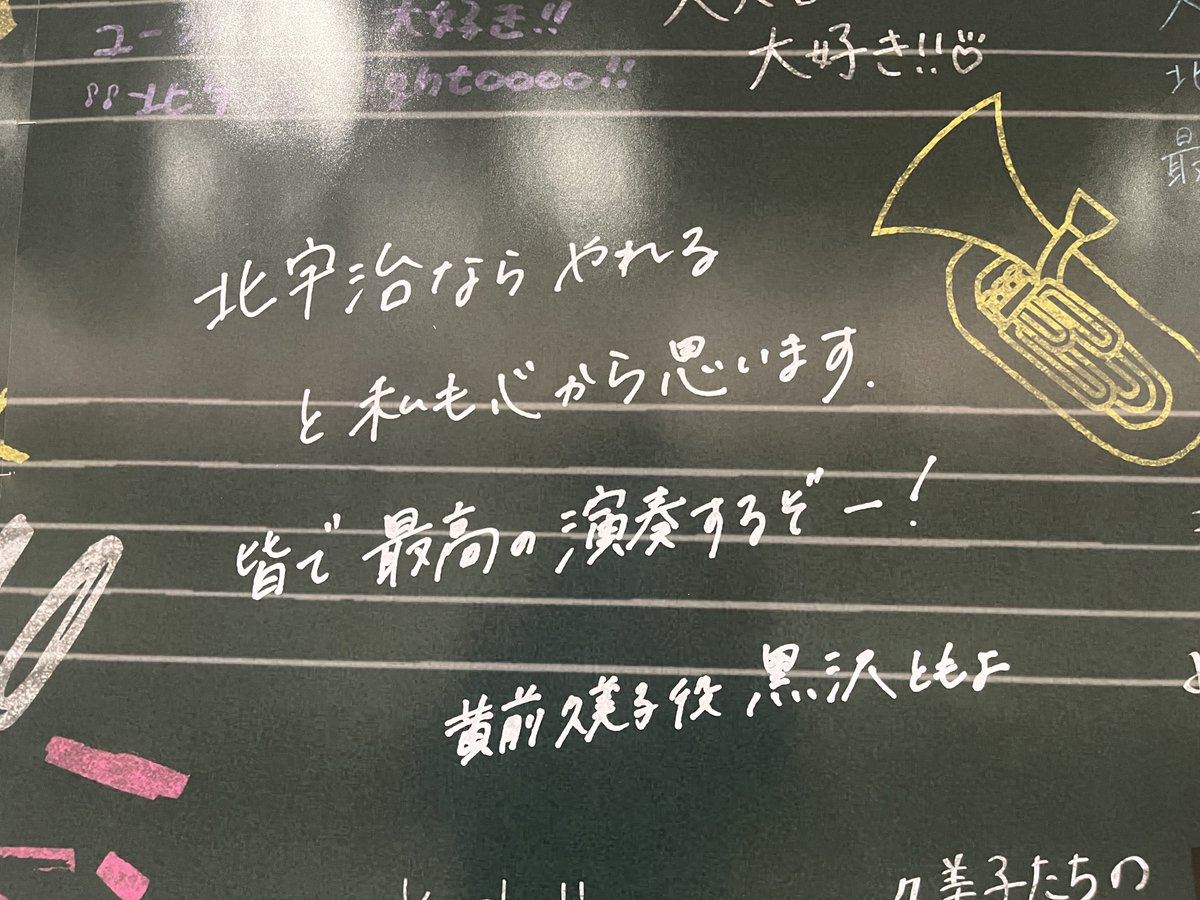 大好き!!
大好き!!
北宇治ならやれる
と私も心から思います.
皆で最高の演奏するぞー!
黄前久美子役 黒沢ともよ
久美子たちの